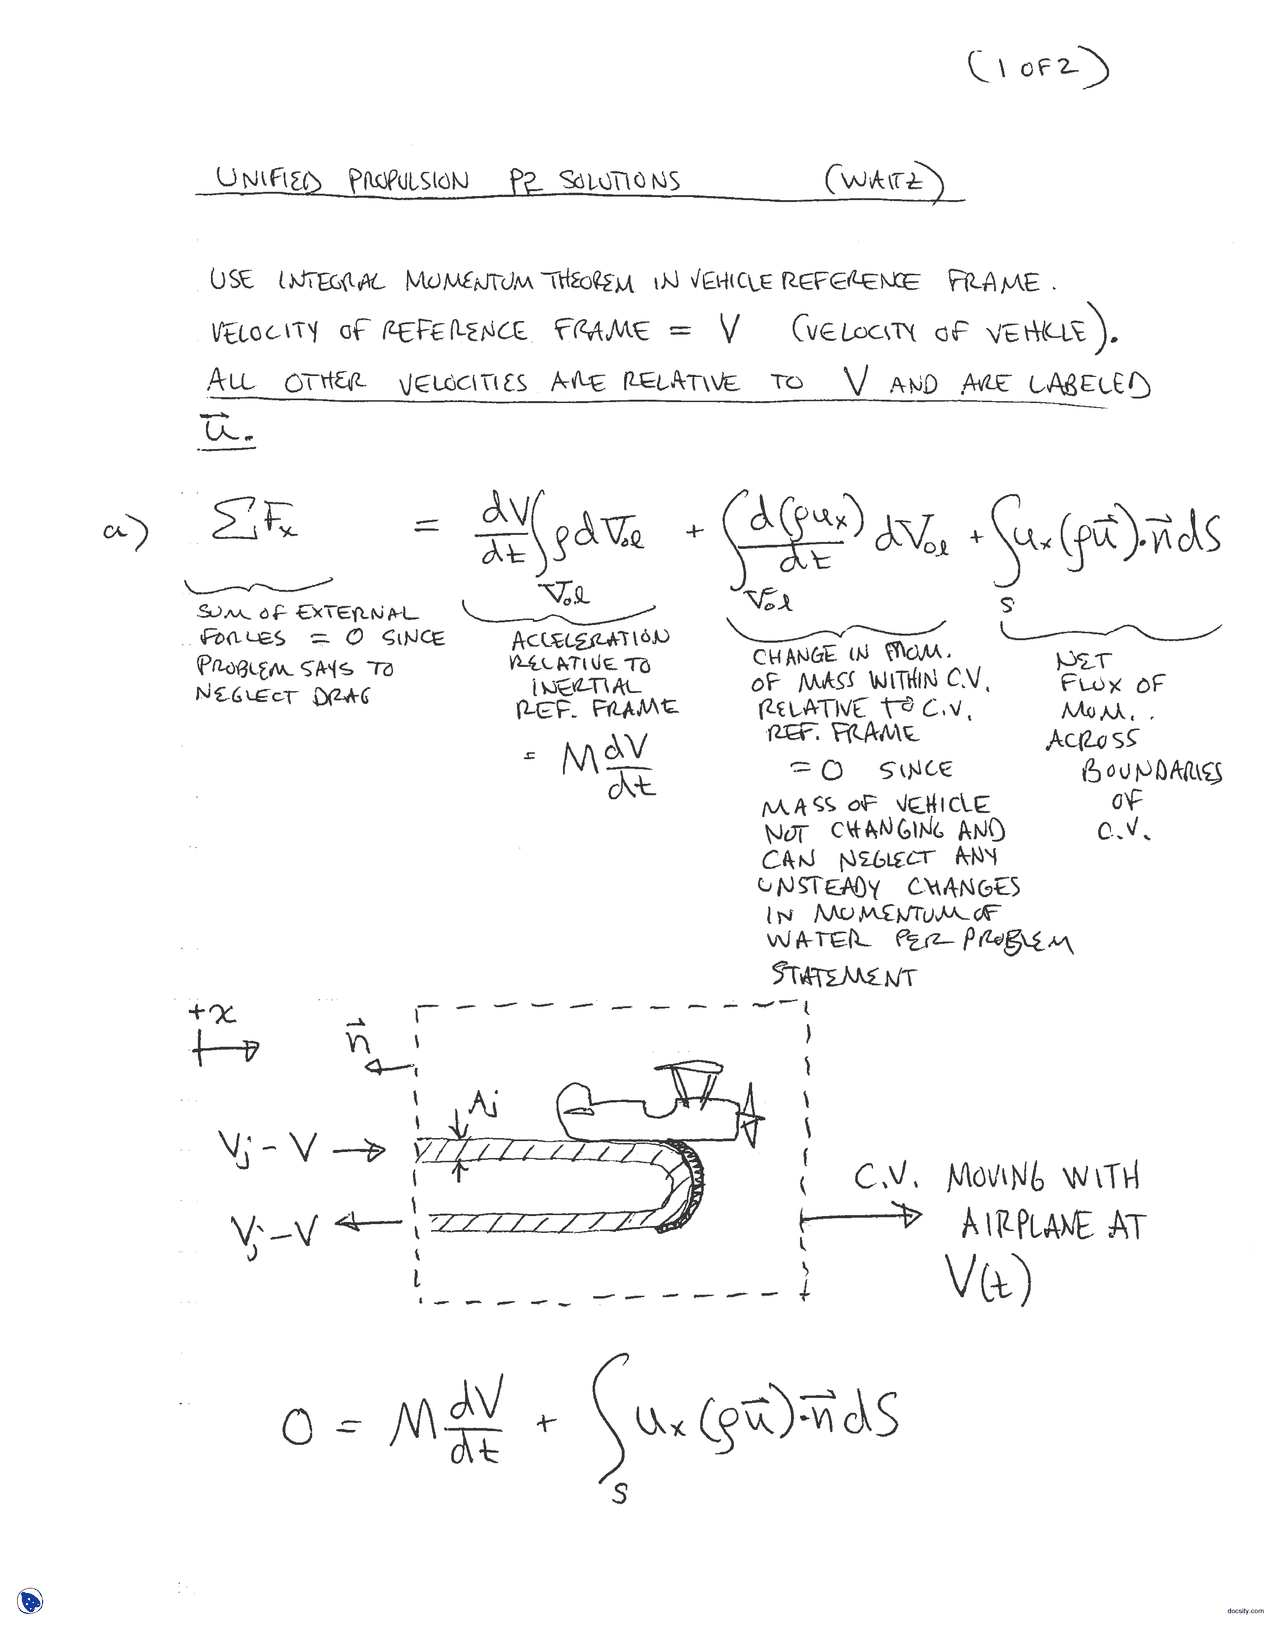 (1 OF 2)
UNIFIED PROPULSION P2 SOLUTIONS (WAITZ)
USE INTEGRAL MOMENTUM THEOREM IN VEHICLE REFERENCE FRAME.
VELOCITY OF REFERENCE FRAME = V (VELOCITY OF VEHICLE).
ALL OTHER VELOCITIES ARE RELATIVE TO V AND ARE LABELED
u⃗.
a) ∑Fx = dV/dt ∫Vol ρ dVol + ∫Vol d(ρux)/dt dVol + ∫S ux(ρu⃗)·n⃗ dS
SUM OF EXTERNAL
FORCES = 0 SINCE
PROBLEM SAYS TO
NEGLECT DRAG
ACCELERATION
RELATIVE TO
INERTIAL
REF. FRAME
= M dV/dt
CHANGE IN MOM.
OF MASS WITHIN C.V.
RELATIVE TO C.V.
REF. FRAME
= 0 SINCE
MASS OF VEHICLE
NOT CHANGING AND
CAN NEGLECT ANY
UNSTEADY CHANGES
IN MOMENTUM OF
WATER PER PROBLEM
STATEMENT
NET
FLUX OF
MOM.
ACROSS
BOUNDARIES
OF
C.V.
+x
n⃗
Aj
Vj - V
Vj - V
C.V. MOVING WITH
AIRPLANE AT
V(t)
0 = M dV/dt + ∫S ux(ρu⃗)·n⃗ dS
docsity.com